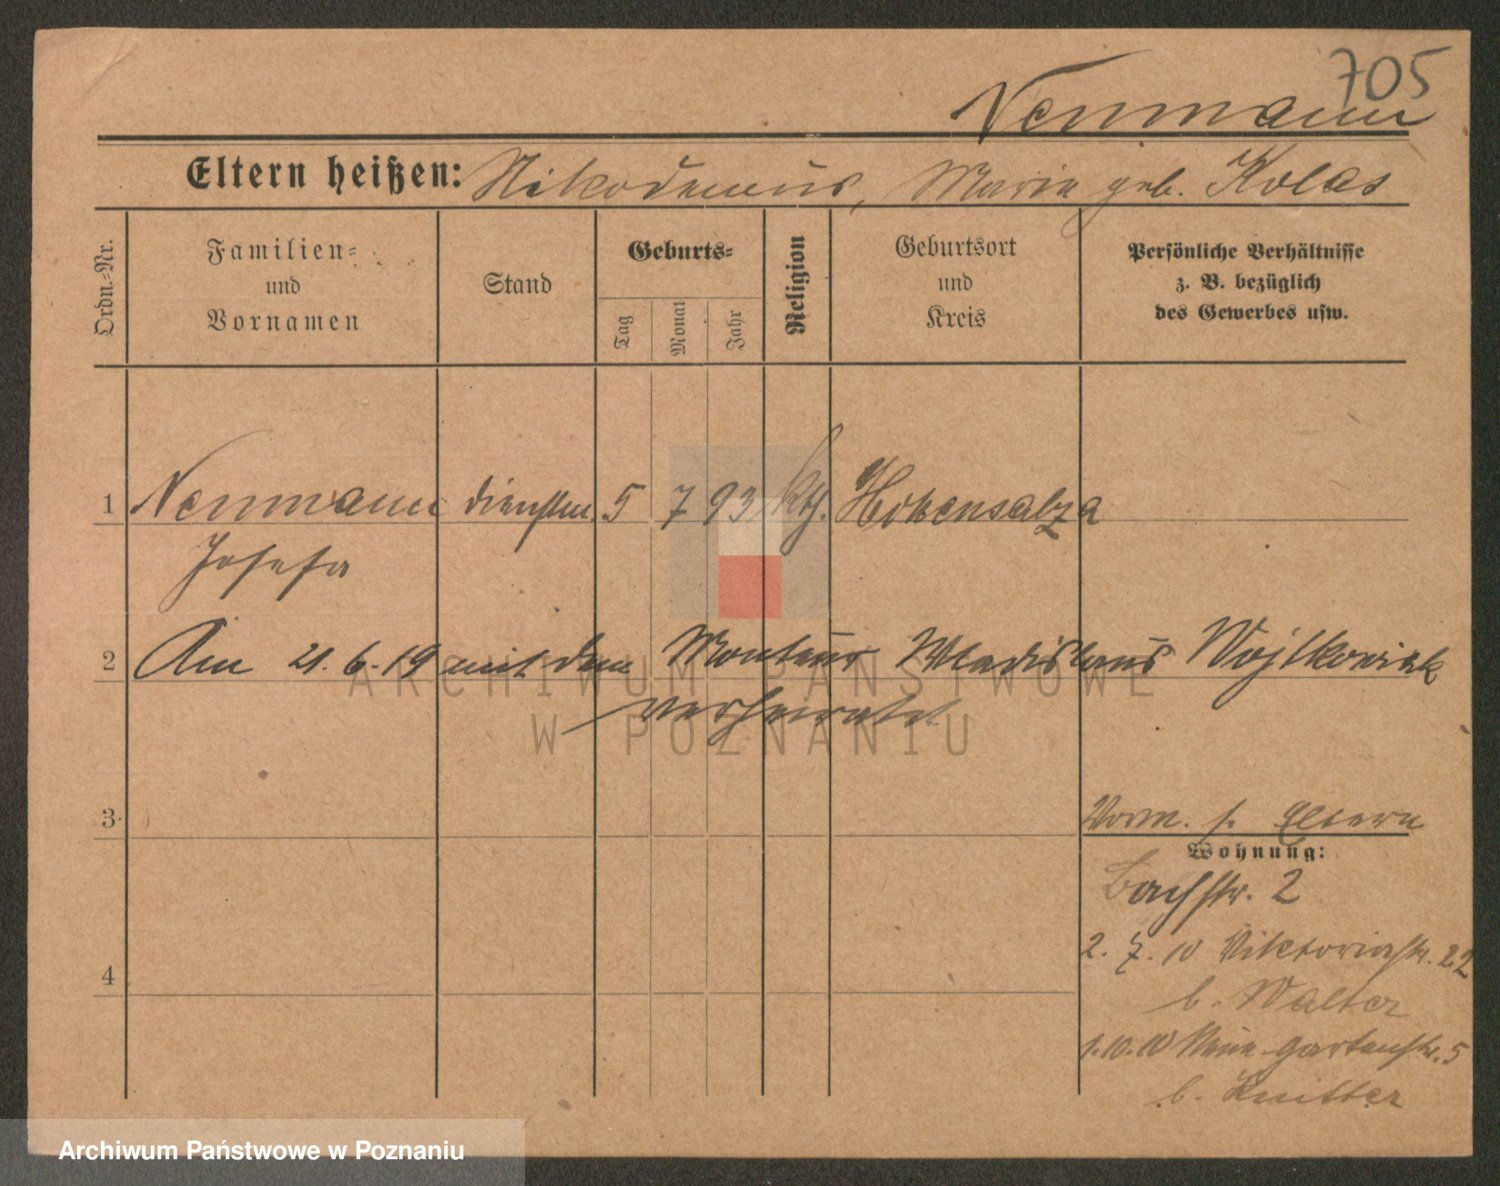 705
Neumann
Eltern heißen: Nikodemus, Marie geb. Kolas
Ordn.-Nr.
Familien- und Vornamen
Stand
Geburts-
Tag
Monat
Jahr
Religion
Geburtsort und Kreis
Persönliche Verhältnisse
z. B. bezüglich
des Gewerbes usw.
1 Neumann Dienstm. 5 7 93 kth. Hohensalza
Josefa
2 Am 21.6.19 mit dem Monteur Wladislaus Wojtkowiak
verheiratet
3
Vorm. s. Eltern
Wohnung:
Bachstr. 2
2. 7. 10 Viktoriastr. 22
4
b. Walter
1.10.10 Neue Gartenstr. 5
b. Knitter
ARCHIWUM PAŃSTWOWE
W POZNANIU
Archiwum Państwowe w Poznaniu